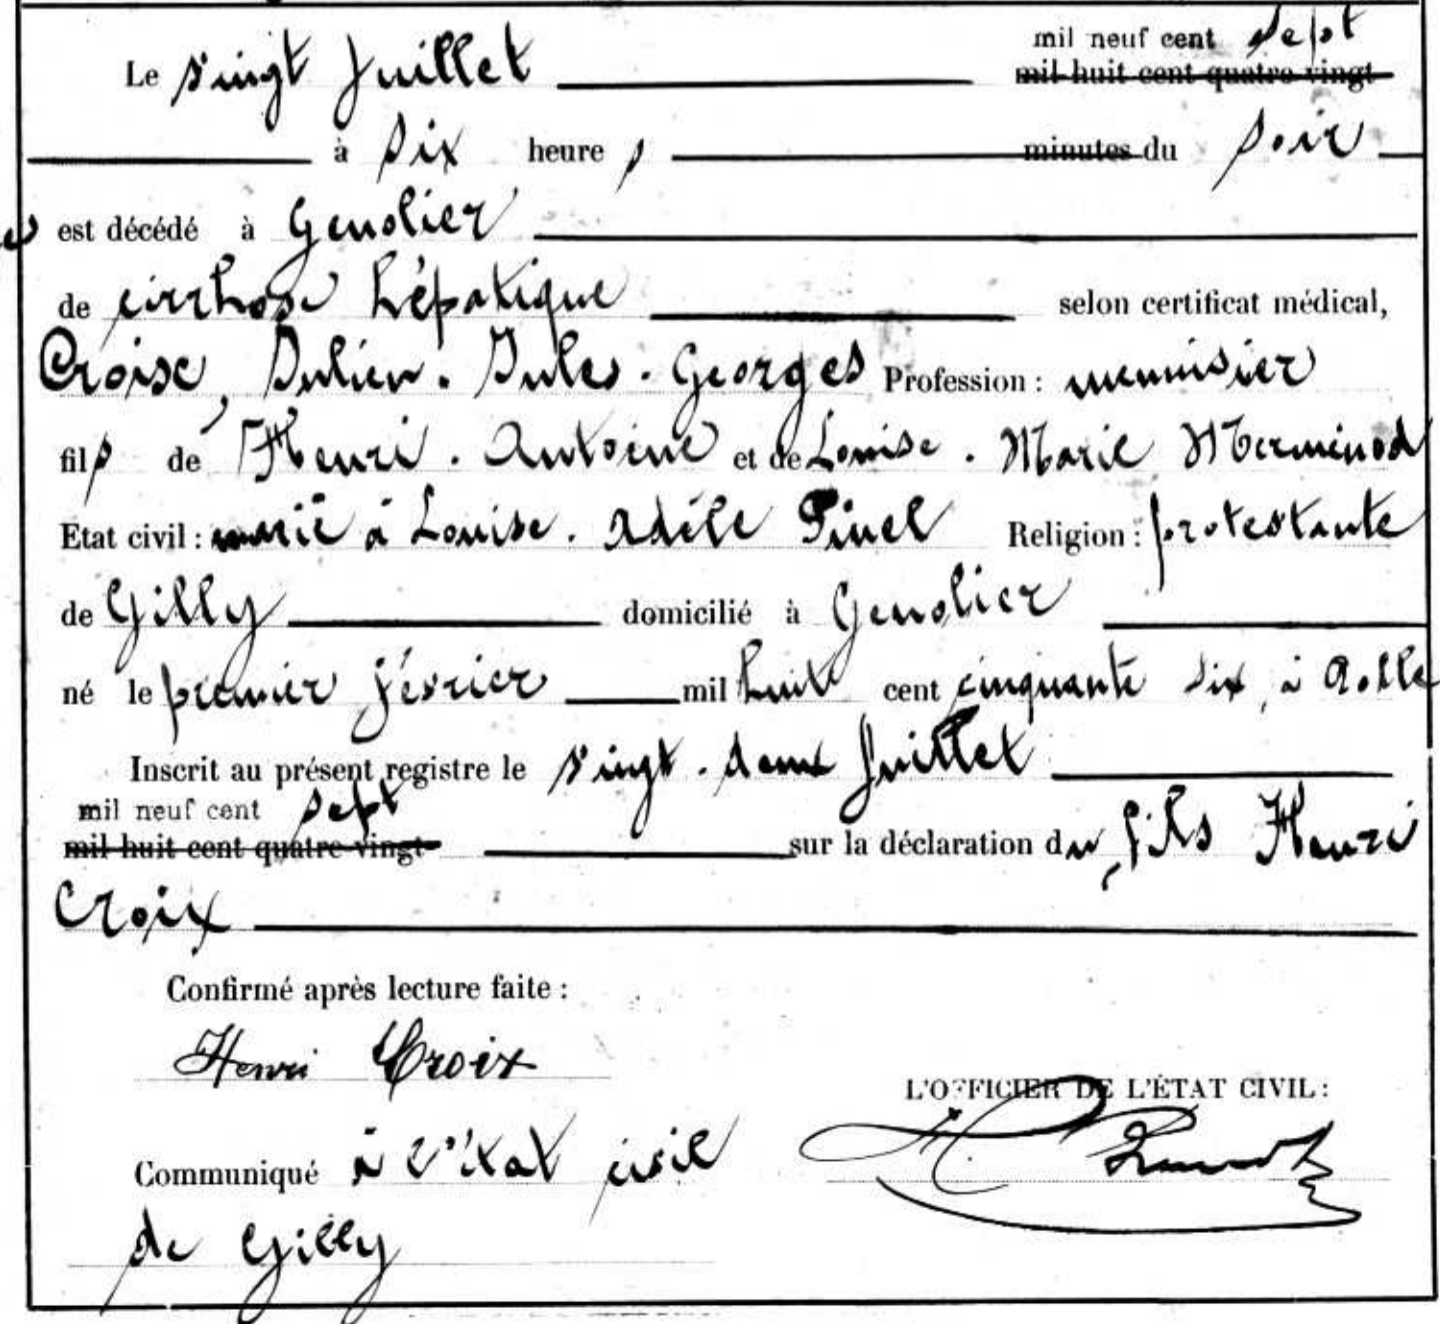 mil neuf cent sept
Le vingt Juillet mil huit cent quatre vingt
à six heures minutes du soir
est décédé à Genolier
de cirrhose hépatique selon certificat médical,
Croise, Julien. Jules. Georges Profession : menuisier
fils de Henri. Antoine et de Louise. Marie Merminod
Etat civil : marié à Louise. Adèle Pinel Religion : protestante
de Gilly domicilié à Genolier
né le premier février mil huit cent cinquante six, à Rolle
Inscrit au présent registre le vingt. deux Juillet
mil neuf cent sept
mil huit cent quatre vingt sur la déclaration du fils Henri
Croix
Confirmé après lecture faite :
Henri Croix
L'OFFICIER DE L'ÉTAT CIVIL :
Communiqué à l'état civil
de Gilly